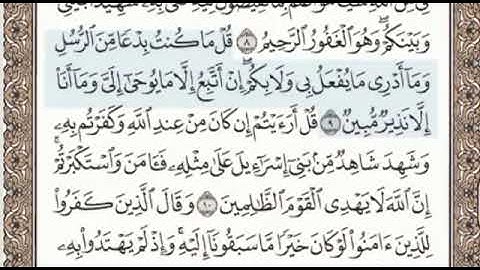 وَبَيْنَكُمْ ۖ وَهُوَ ٱلْغَفُورُ ٱلرَّحِيمُ ٨ قُلْ مَا كُنتُ بِدْعًا مِّنَ ٱلرُّسُلِ
وَمَآ أَدْرِى مَا يُفْعَلُ بِى وَلَا بِكُمْ ۖ إِنْ أَتَّبِعُ إِلَّا مَا يُوحَىٰٓ إِلَىَّ وَمَآ أَنَا۠
إِلَّا نَذِيرٌ مُّبِينٌ ٩ قُلْ أَرَءَيْتُمْ إِن كَانَ مِنْ عِندِ ٱللَّهِ وَكَفَرْتُم بِهِۦ
وَشَهِدَ شَاهِدٌ مِّنۢ بَنِىٓ إِسْرَٰٓءِيلَ عَلَىٰ مِثْلِهِۦ فَـَٔامَنَ وَٱسْتَكْبَرْتُمْ ۖ
إِنَّ ٱللَّهَ لَا يَهْدِى ٱلْقَوْمَ ٱلظَّٰلِمِينَ ١٠ وَقَالَ ٱلَّذِينَ كَفَرُوا۟
لِلَّذِينَ ءَامَنُوا۟ لَوْ كَانَ خَيْرًا مَّا سَبَقُونَآ إِلَيْهِ ۚ وَإِذْ لَمْ يَهْتَدُوا۟ بِهِۦ